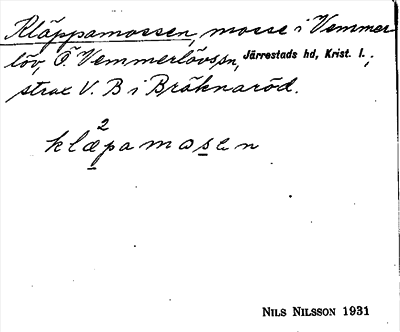 Kläppamossen, mosse i Vemmer
löv, Ö Vemmerlövs sn, Järrestads hd, Krist. l.,
strax V. B i Bräknaröd.
2
klæpamosen
NILS NILSSON 1931